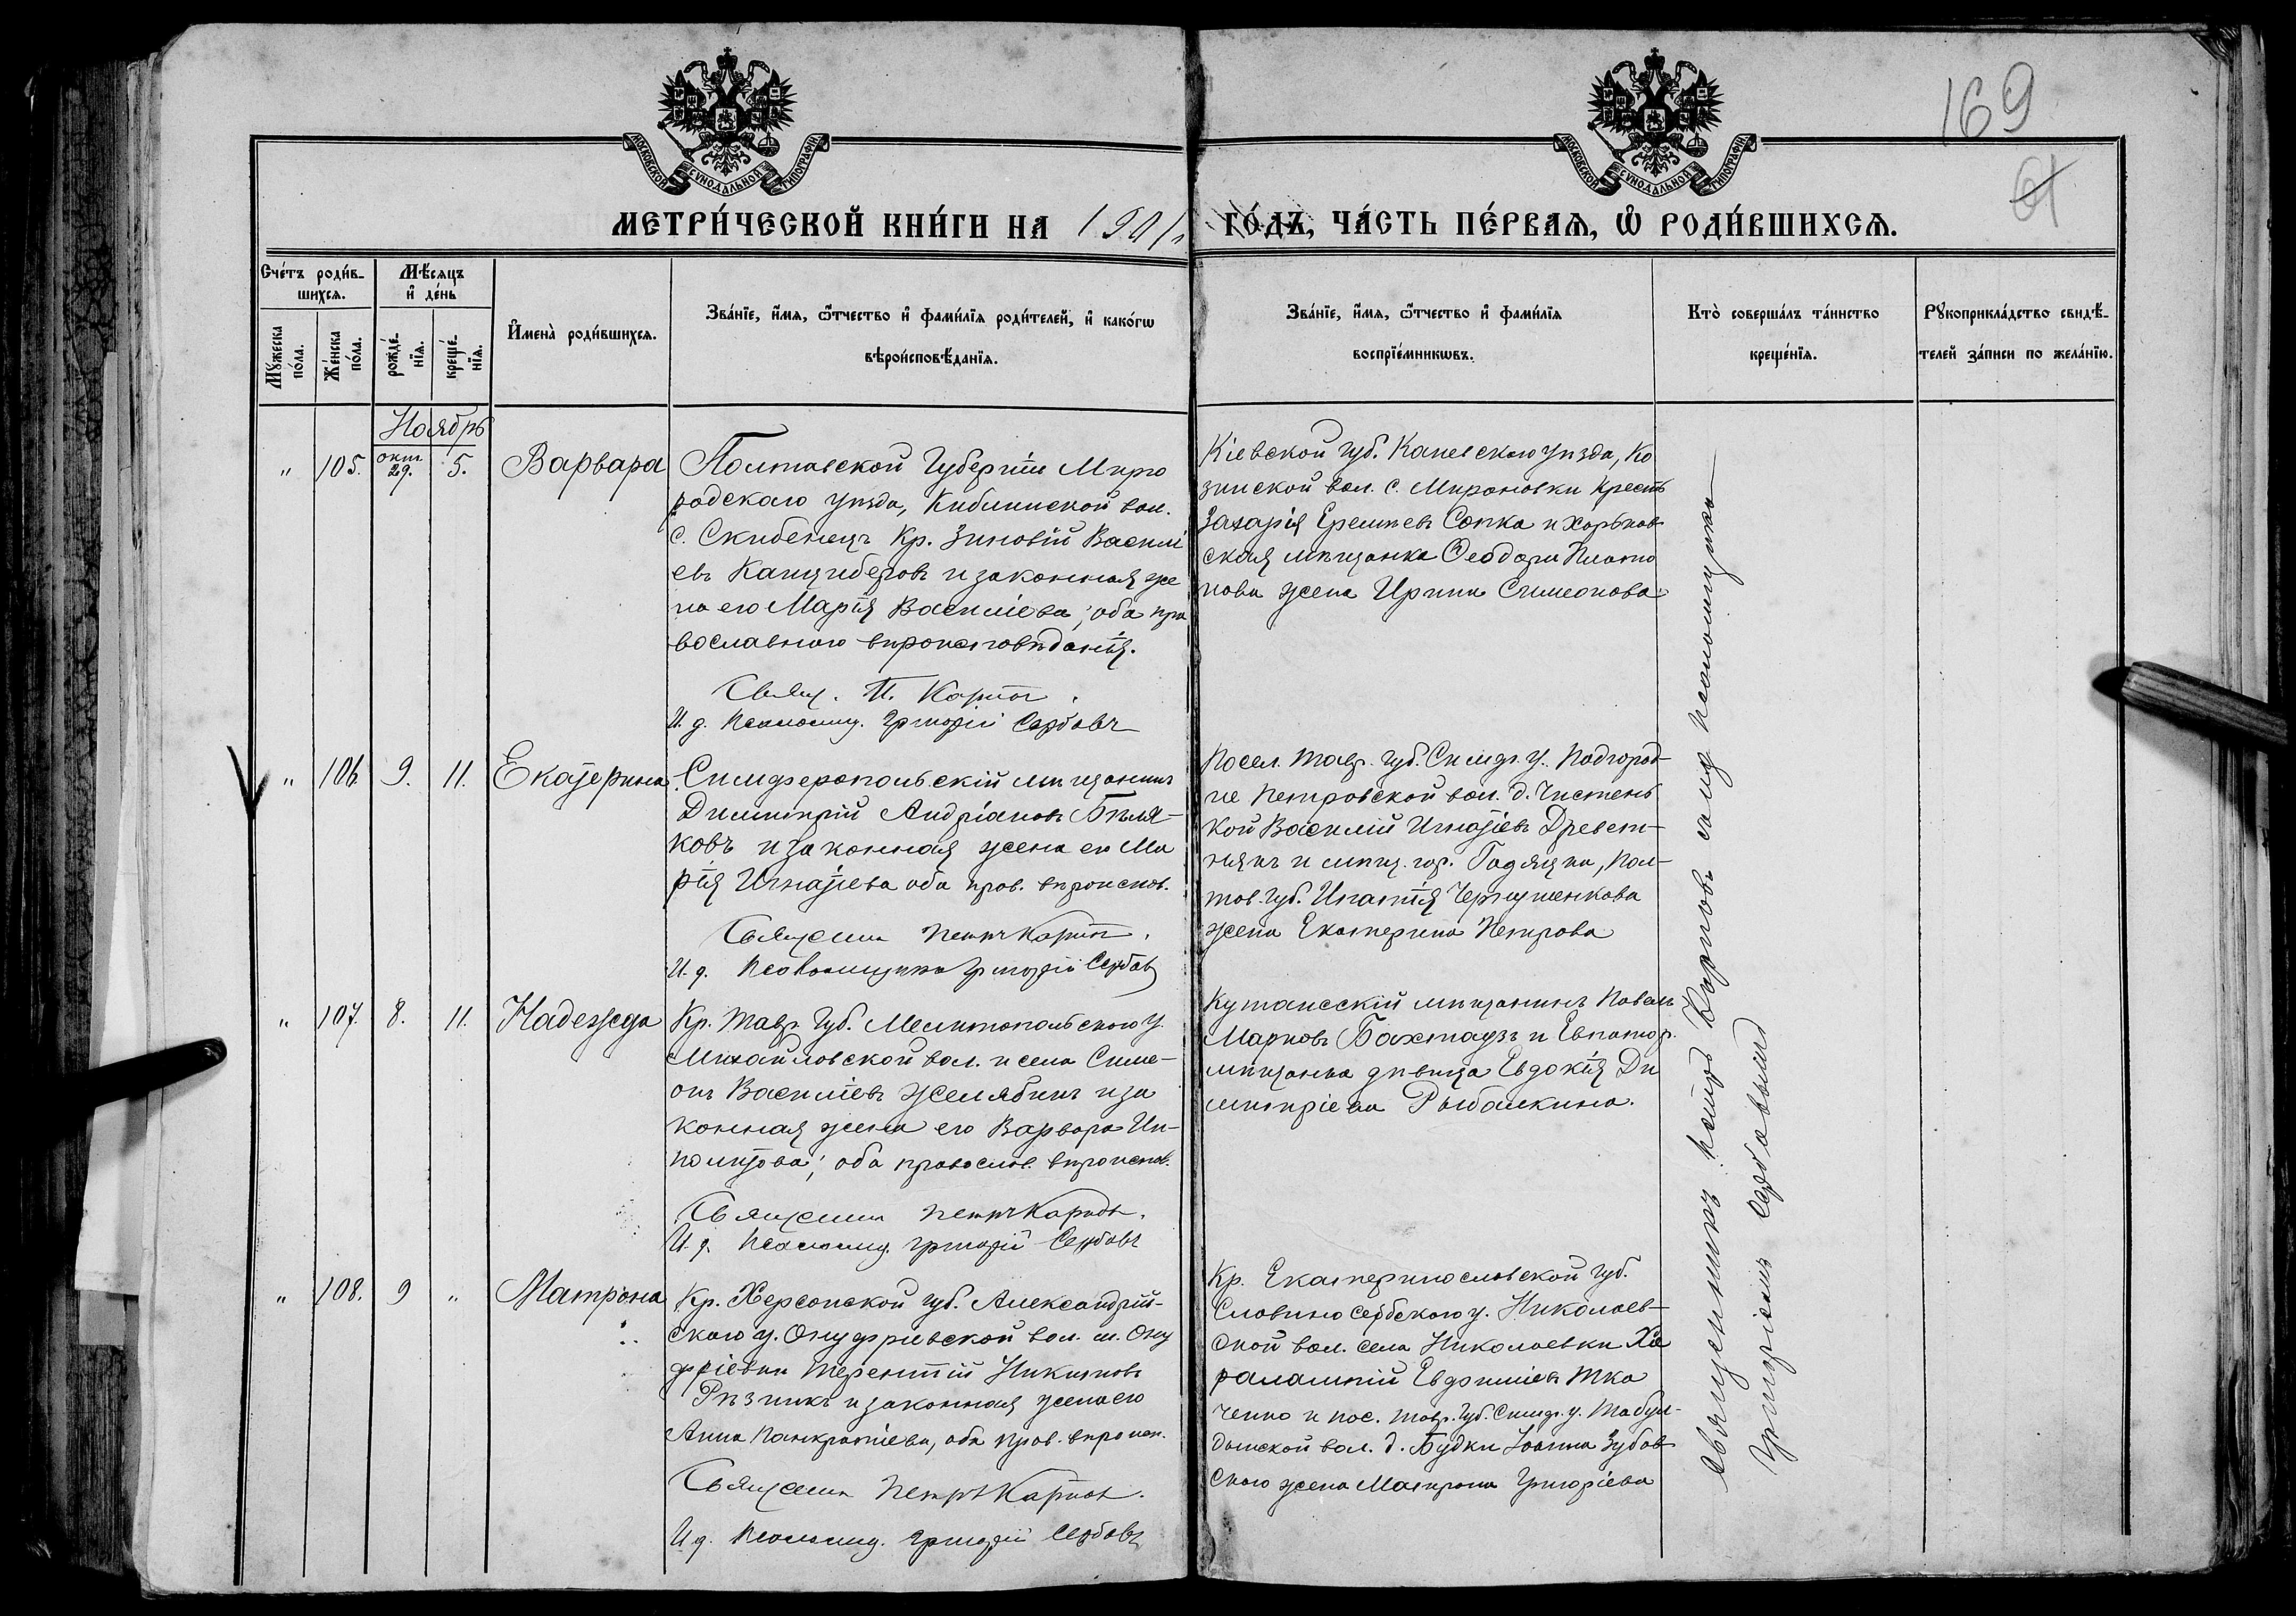 169
61
МОСКОВСКОЙ СУНОДАЛЬНОЙ ТИПОГРАФІИ
МОСКОВСКОЙ СУНОДАЛЬНОЙ ТИПОГРАФІИ
МЕТРИ́ЧЕСКОЙ КНИ́ГИ НА 1901 г. ГО́ДЪ, ЧА́СТЬ ПЕ́РВАѦ, Ѡ҆ РОДИ́ВШИХСѦ.
Сче́тъ роди́в-
шихсѧ.
Мѣ́сѧцъ
и҆ де́нь
Мꙋ́жеска
по́ла.
Же́нска
по́ла.
рожде́-
нїѧ.
креще́-
нїѧ.
И҆мена̀ роди́вшихсѧ.
Зва́нїе, и҆́мѧ, ѻ҆́тчество и҆ фами́лїѧ роди́телей, и҆ како́гѡ
вѣроисповѣ́данїѧ.
Зва́нїе, и҆́мѧ, ѻ҆́тчество и҆ фами́лїѧ
воспрїе́мникѡвъ.
Кто̀ соверша́лъ та́инство
креще́нїѧ.
Рꙋкоприкла́дство свидѣ́-
телей за́писи по жела́нїю.
Ноябрь
" 105. окт 29. 5. Варвара
Полтавской Губерніи Мирго
родскаго уѣзда, Кибинской вол.
с. Скибенецъ Кр. Зиновій Василі
евъ Канциберовъ и законная же
на его Марія Василіева; оба пра
вославнаго вѣроисповѣданія.
Свящ. П. Карповъ.
И. д. Псаломщ. Григорій Сербовъ
Кіевской губ. Каневскаго уѣзда, Ко
зинской вол. с. Мироновки крест
Захарія Еремѣевъ Сопка и харьков
ская мѣщанка Ѳеодора Плато
нова жена Ирина Симеонова
" 106 9. 11. Екатерина
Симферопольскій мѣщанинъ
Димитрій Андріановъ Бѣля-
ковъ и законная жена его Ма
рія Игнатіева оба прав. вѣроиспов.
Священникъ Петръ Карповъ.
И. д. Псаломщика Григорій Сербовъ
Посел. Тавр. губ. Симф. у. Подгород-
не Петровской вол. д. Чистень
кой Василій Игнатіевъ Древет-
някъ и мѣщ. гор. Гадячка, Пол-
тав. губ. Ипатія Чернушенкова
жена Екатерина Петрова
" 107. 8. 11. Надежда
Кр. Тавр. Губ. Мелитопольскаго у.
Михайловской вол. и села Симе-
онъ Василіевъ Желябинъ и за
конная жена его Варвара Ип-
политова; оба православ. вѣроиспов.
Священникъ Петръ Карповъ.
И. д. Псаломщ. Григорій Сербовъ
Кутаисскій мѣщанинъ Павелъ
Марковъ Бахтадзъ и Евпатор.
мѣщанка дѣвица Евдокія Ди
митріева Рыбалкина.
" 108. 9 " Матрона
Кр. Херсонской губ. Александрій-
скаго у. Онуфріевской вол. м. Ону
фріевки Терентій Никитовъ
Рѣзникъ и законная жена его
Анна Панкратіева, оба прав. вѣроисп.
Священникъ Петръ Карповъ.
И. д. Псаломщ. Григорій Сербовъ
Кр. Екатеринославской губ.
Славяносербскаго у. Николаев-
ской вол. села Николаевки Ха
ралампій Евфиміевъ Тка
ченко и пос. Тавр. Губ. Симф. у. Табул-
дынской вол. д. Будки Іоанна Зубов
скаго жена Матрона Григоріева
Священникъ Петръ Карповъ съ и. д. псаломщика
Григоріемъ Сербовымъ